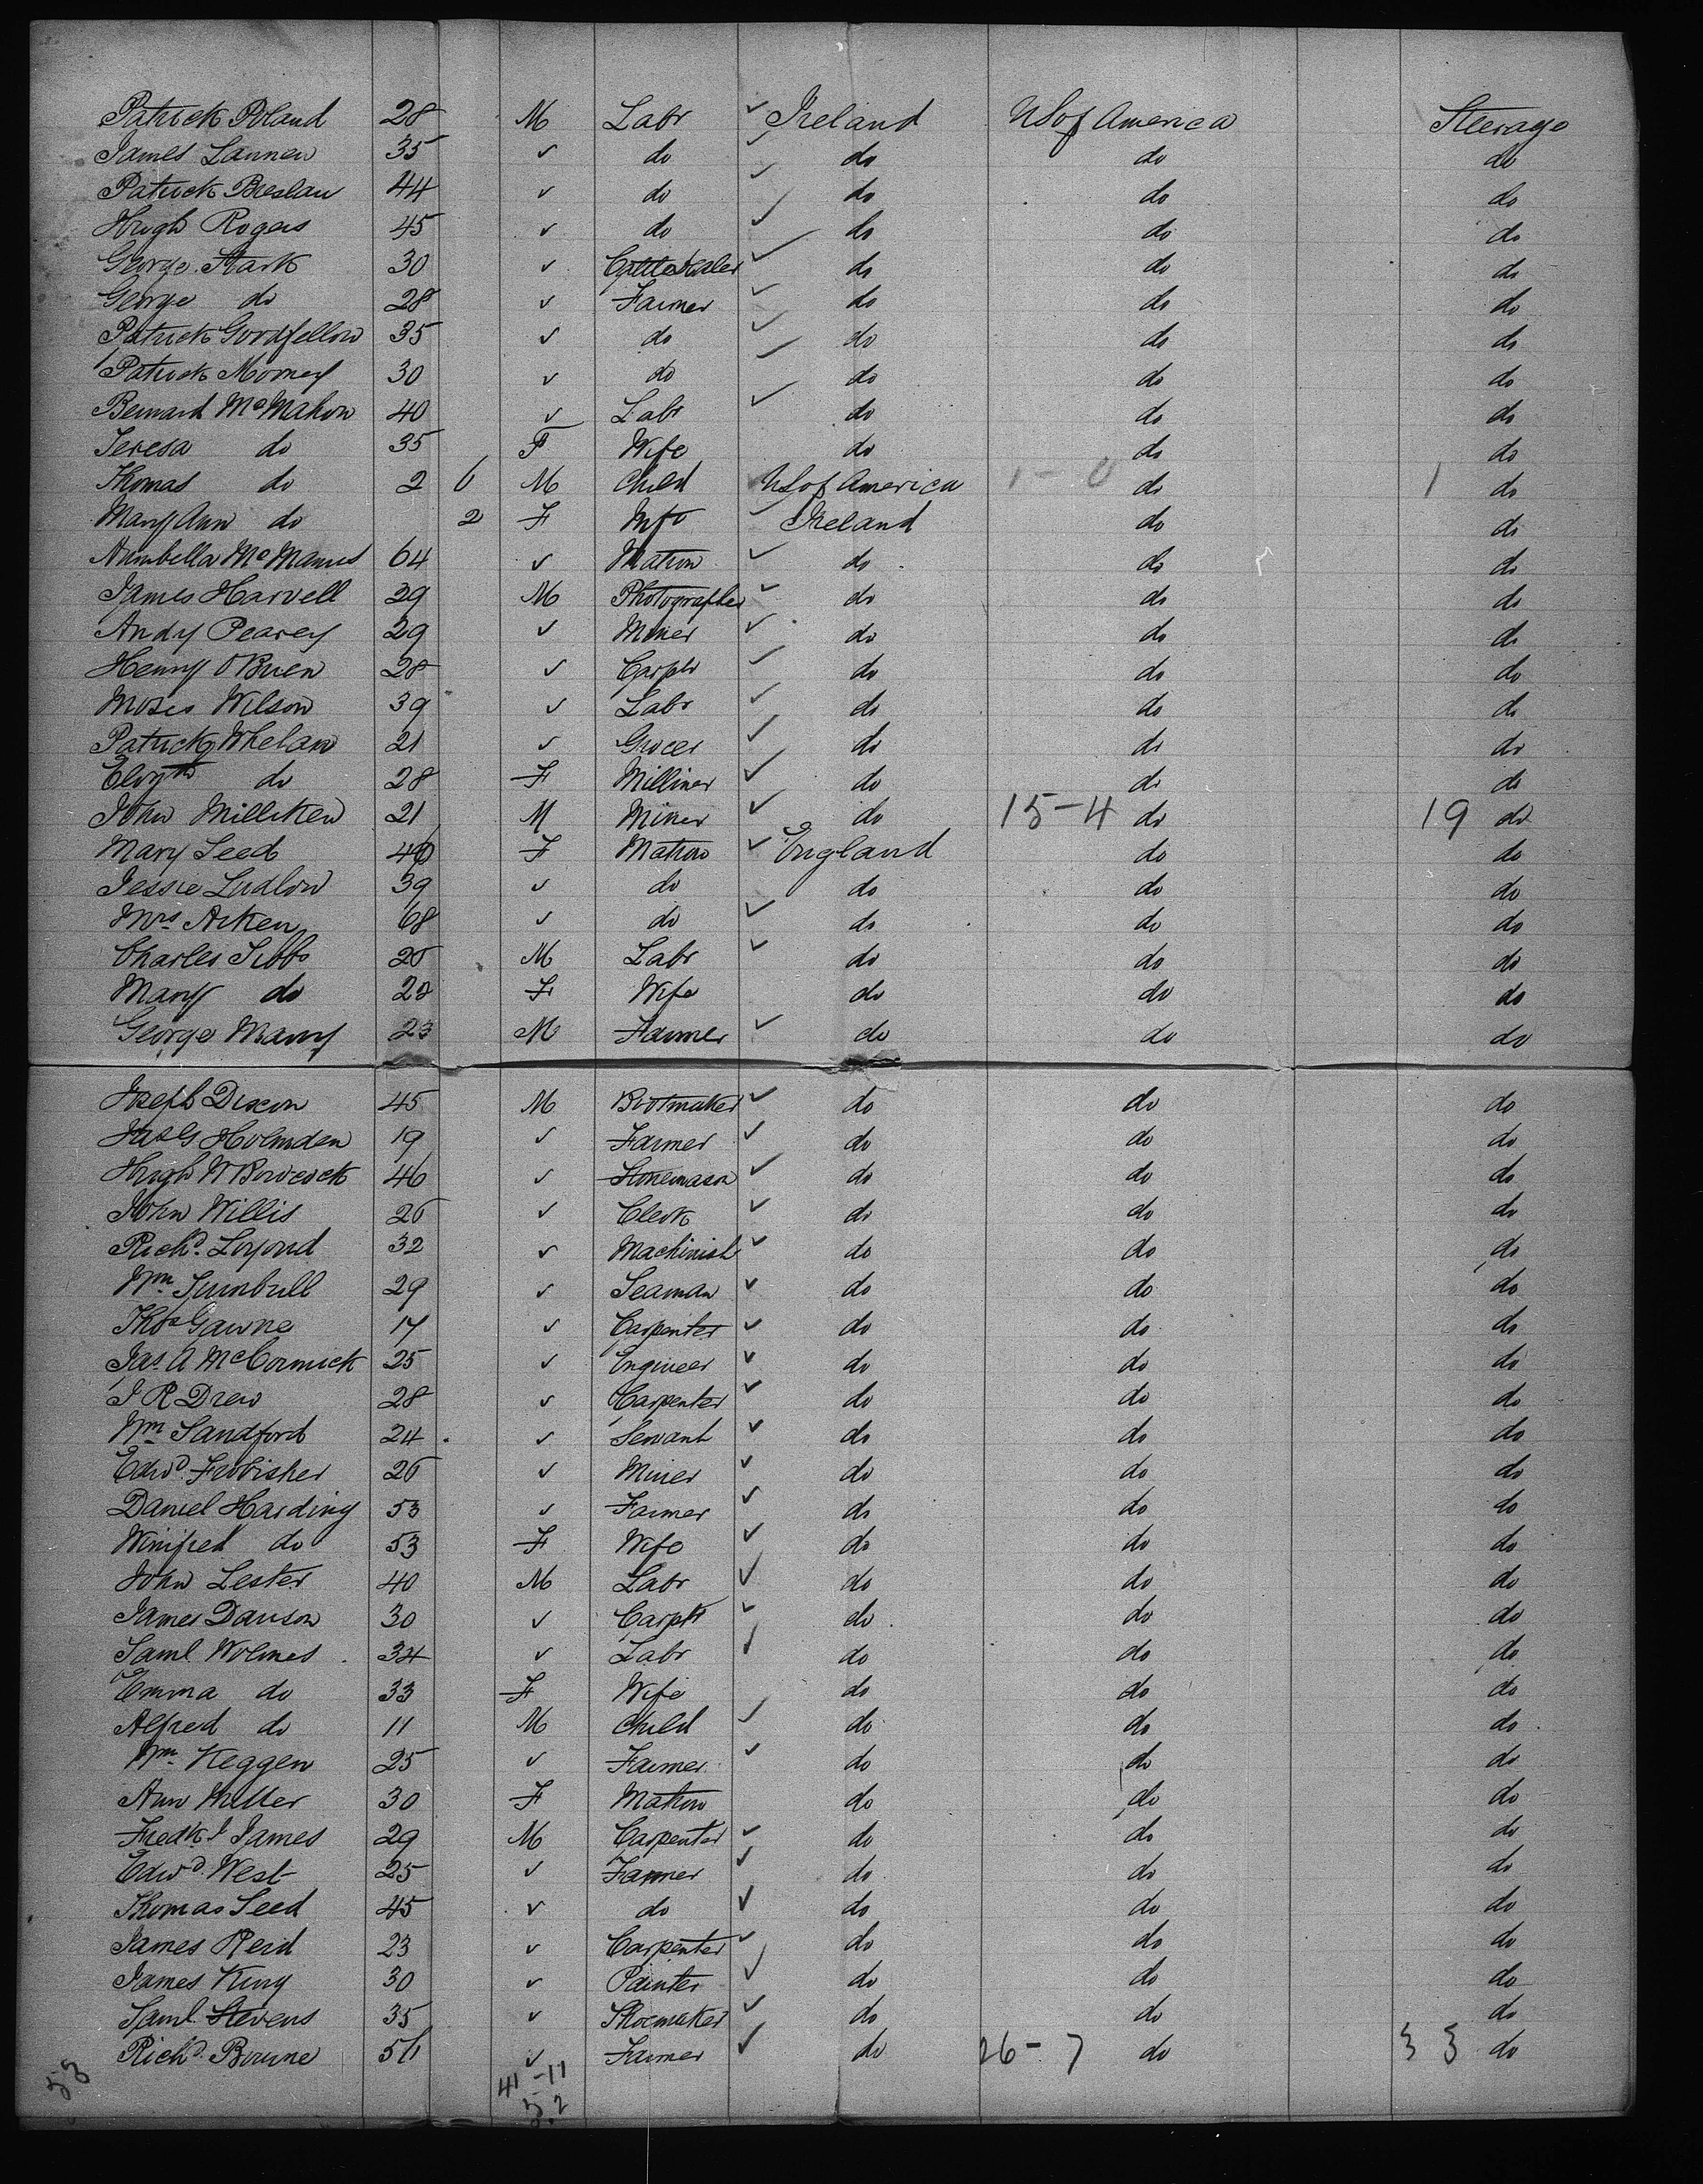 Patrick Poland 28 M Labr ✓ Ireland US of America Steerage
James Lannen 35 ✓ do ✓ do do do
Patrick Breslau 44 ✓ do ✓ do do do
Hugh Rogers 45 ✓ do ✓ do do do
George Stark 30 ✓ Cattle Dealer ✓ do do do
George do 28 ✓ Farmer ✓ do do do
Patrick Goodfellow 35 ✓ do ✓ do do do
Patrick 30 ✓ do ✓ do do do
Bernard McMahon 40 ✓ Labr ✓ do do do
Teresa do 35 F Wife do do do
Thomas do 2 6 M Child US of America 1-0 do 1 do
Mary Ann do 2 F Inft ✓ Ireland do do
Annabella McManus 64 ✓ Matron ✓ do do do
James Harvell 29 M Photographer ✓ do do do
Andy Pearey 29 ✓ Miner ✓ do do do
Henry O'Brien 28 ✓ Carptr ✓ do do do
Moses Wilson 39 ✓ Labr ✓ do do do
Patrick Whelan 21 ✓ Grocer ✓ do do do
do 28 F Milliner ✓ do do do
John Milliken 21 M Miner ✓ do 15-4 do 19 do
Mary Seed 40 F Matron ✓ England do do
Jessie Ludlow 39 ✓ do do do do
Mrs Aiken 68 ✓ do ✓ do do do
Charles Tibbs 25 M Labr ✓ do do do
Mary do 28 F Wife do do do
George 23 M Farmer ✓ do do do
Joseph Dixon 45 M Bootmaker ✓ do do do
Jas G Holmden 19 ✓ Farmer ✓ do do do
Hugh W Bowcock 46 ✓ Stonemason ✓ do do do
John Willis 26 ✓ Clerk ✓ do do do
Richd. Loyond 32 ✓ Machinist ✓ do do do
Wm Turnbull 29 ✓ Seaman ✓ do do do
Thos Gawne 17 ✓ Carpenter ✓ do do do
Jas. A McCormick 25 ✓ Engineer ✓ do do do
J R Drew 28 ✓ Carpenter ✓ do do do
Wm Sandford 24 ✓ Servant ✓ do do do
Edwd. Frobisher 26 ✓ Miner ✓ do do do
Daniel Harding 53 ✓ Farmer ✓ do do do
Winifred do 53 F Wife ✓ do do do
John Lester 40 M Labr ✓ do do do
James Dawson 30 ✓ Carptr ✓ do do do
Saml Wolmes 34 ✓ Labr ✓ do do do
Emma do 33 F Wife do do do
Alfred do 11 M Child ✓ do do do
Wm. Keggen 25 ✓ Farmer ✓ do do do
Ann Miller 30 F Matron do do do
Fredk J James 29 M Carpenter ✓ do do do
Edwd. West 25 ✓ Farmer ✓ do do do
Thomas Seed 45 ✓ do ✓ do do do
James Reid 23 ✓ Carpenter ✓ do do do
James King 30 ✓ Painter ✓ do do do
Saml. Stevens 35 ✓ Shoemaker ✓ do do do
Richd. Bourne 56 ✓ Farmer ✓ do 26-7 do 33 do
53 41-11